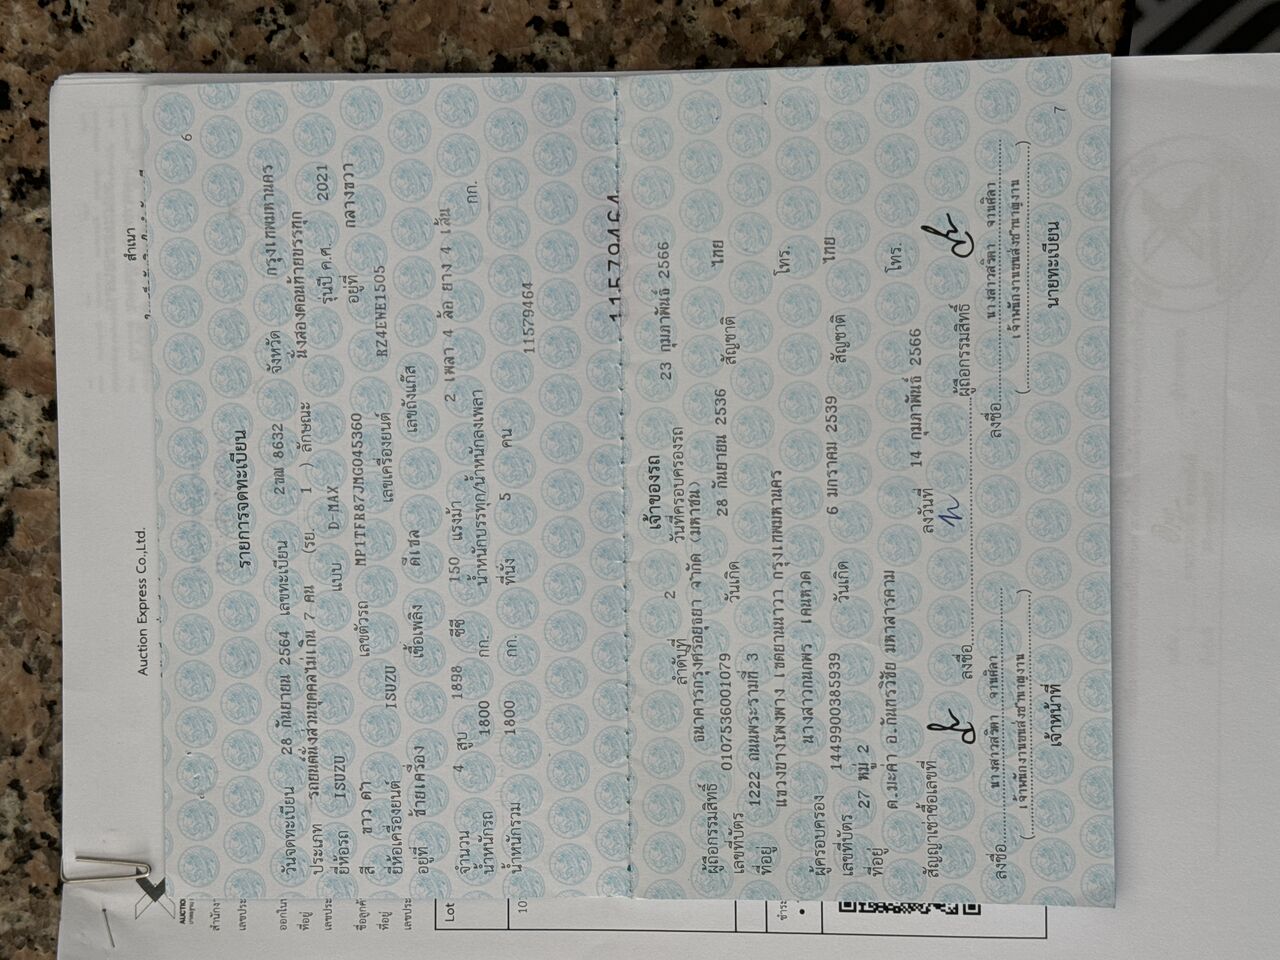 Auction Express Co.,Ltd.
สำเนา
6
รายการจดทะเบียน
วันจดทะเบียน 28 กันยายน 2564 เลขทะเบียน 2ฒฌ 8632 จังหวัด กรุงเทพมหานคร
ประเภท รถยนต์นั่งส่วนบุคคลไม่เกิน 7 คน (รย. 1 ) ลักษณะ นั่งสองตอนท้ายบรรทุก
ยี่ห้อรถ ISUZU แบบ D-MAX รุ่นปี ค.ศ. 2021
สี ขาว ดำ เลขตัวรถ MP1TFR87JMG045360 อยู่ที่ กลางขวา
ยี่ห้อเครื่องยนต์ ISUZU เลขเครื่องยนต์ RZ4EWE1505
อยู่ที่ ซ้ายเครื่อง เชื้อเพลิง ดีเซล เลขถังแก๊ส
จำนวน 4 สูบ 1898 ซีซี 150 แรงม้า 2 เพลา 4 ล้อ ยาง 4 เส้น
น้ำหนักรถ 1800 กก. น้ำหนักบรรทุก/น้ำหนักลงเพลา กก.
น้ำหนักรวม 1800 กก. ที่นั่ง 5 คน 11579464
11579464
เจ้าของรถ
ลำดับที่ 2 วันที่ครอบครองรถ 23 กุมภาพันธ์ 2566
ผู้ถือกรรมสิทธิ์ ธนาคารกรุงศรีอยุธยา จำกัด (มหาชน)
เลขที่บัตร 0107536001079 วันเกิด 28 กันยายน 2536 สัญชาติ ไทย
ที่อยู่ 1222 ถนนพระรามที่ 3
แขวงบางโพงพาง เขตยานนาวา กรุงเทพมหานคร โทร.
ผู้ครอบครอง นางสาวกนกพร เคนหวด
เลขที่บัตร 1449900385939 วันเกิด 6 มกราคม 2539 สัญชาติ ไทย
ที่อยู่ 27 หมู่ 2
ต.มะค่า อ.กันทรวิชัย มหาสารคาม โทร.
สัญญาเช่าซื้อเลขที่ ลงวันที่ 14 กุมภาพันธ์ 2566
ลงชื่อ ผู้ถือกรรมสิทธิ์
ลงชื่อ นางสาวสริตา จานศิลา ลงชื่อ นางสาวสริตา จานศิลา
( เจ้าพนักงานขนส่งชำนาญงาน ) ( เจ้าพนักงานขนส่งชำนาญงาน )
เจ้าหน้าที่ นายทะเบียน
7
AUCTION
ที่อยู่
ที่อยู่
Lot
10